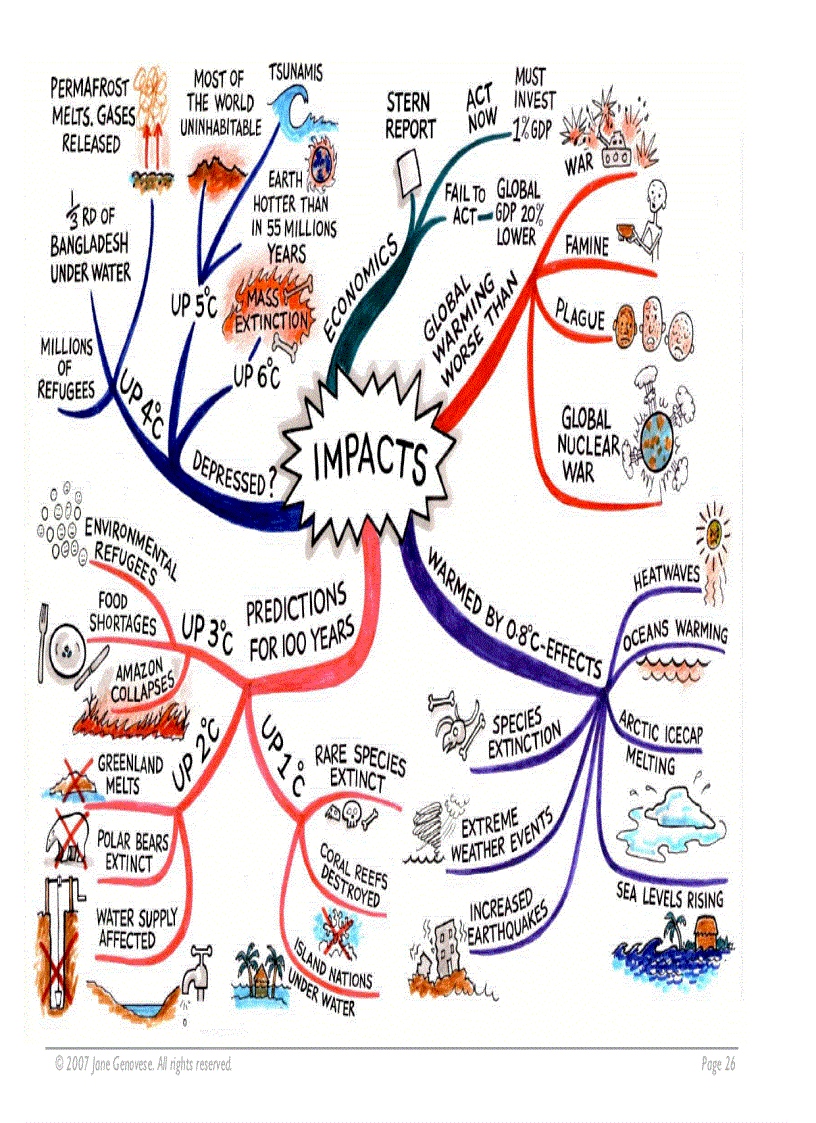 PERMAFROST
MELTS. GASES
RELEASED
MOST OF
THE WORLD
UNINHABITABLE
TSUNAMIS
EARTH
HOTTER THAN
IN 55 MILLIONS
YEARS
1/3 RD OF
BANGLADESH
UNDER WATER
MILLIONS
OF
REFUGEES
UP 4°C
UP 5°C
MASS
EXTINCTION
UP 6°C
DEPRESSED?
STERN
REPORT
ACT
NOW
MUST
INVEST
1% GDP
FAIL TO
ACT
GLOBAL
GDP 20%
LOWER
ECONOMICS
GLOBAL
WARMING
WORSE THAN
WAR
FAMINE
PLAGUE
GLOBAL
NUCLEAR
WAR
IMPACTS
ENVIRONMENTAL
REFUGEES
FOOD
SHORTAGES
AMAZON
COLLAPSES
UP 3°C
PREDICTIONS
FOR 100 YEARS
UP 2°C
GREENLAND
MELTS
POLAR BEARS
EXTINCT
WATER SUPPLY
AFFECTED
UP 1°C
RARE SPECIES
EXTINCT
CORAL REEFS
DESTROYED
ISLAND NATIONS
UNDER WATER
WARMED BY 0.8°C-EFFECTS
HEATWAVES
OCEANS WARMING
ARCTIC ICECAP
MELTING
SEA LEVELS RISING
SPECIES
EXTINCTION
EXTREME
WEATHER EVENTS
INCREASED
EARTHQUAKES
© 2007 Jane Genovese. All rights reserved.
Page 26